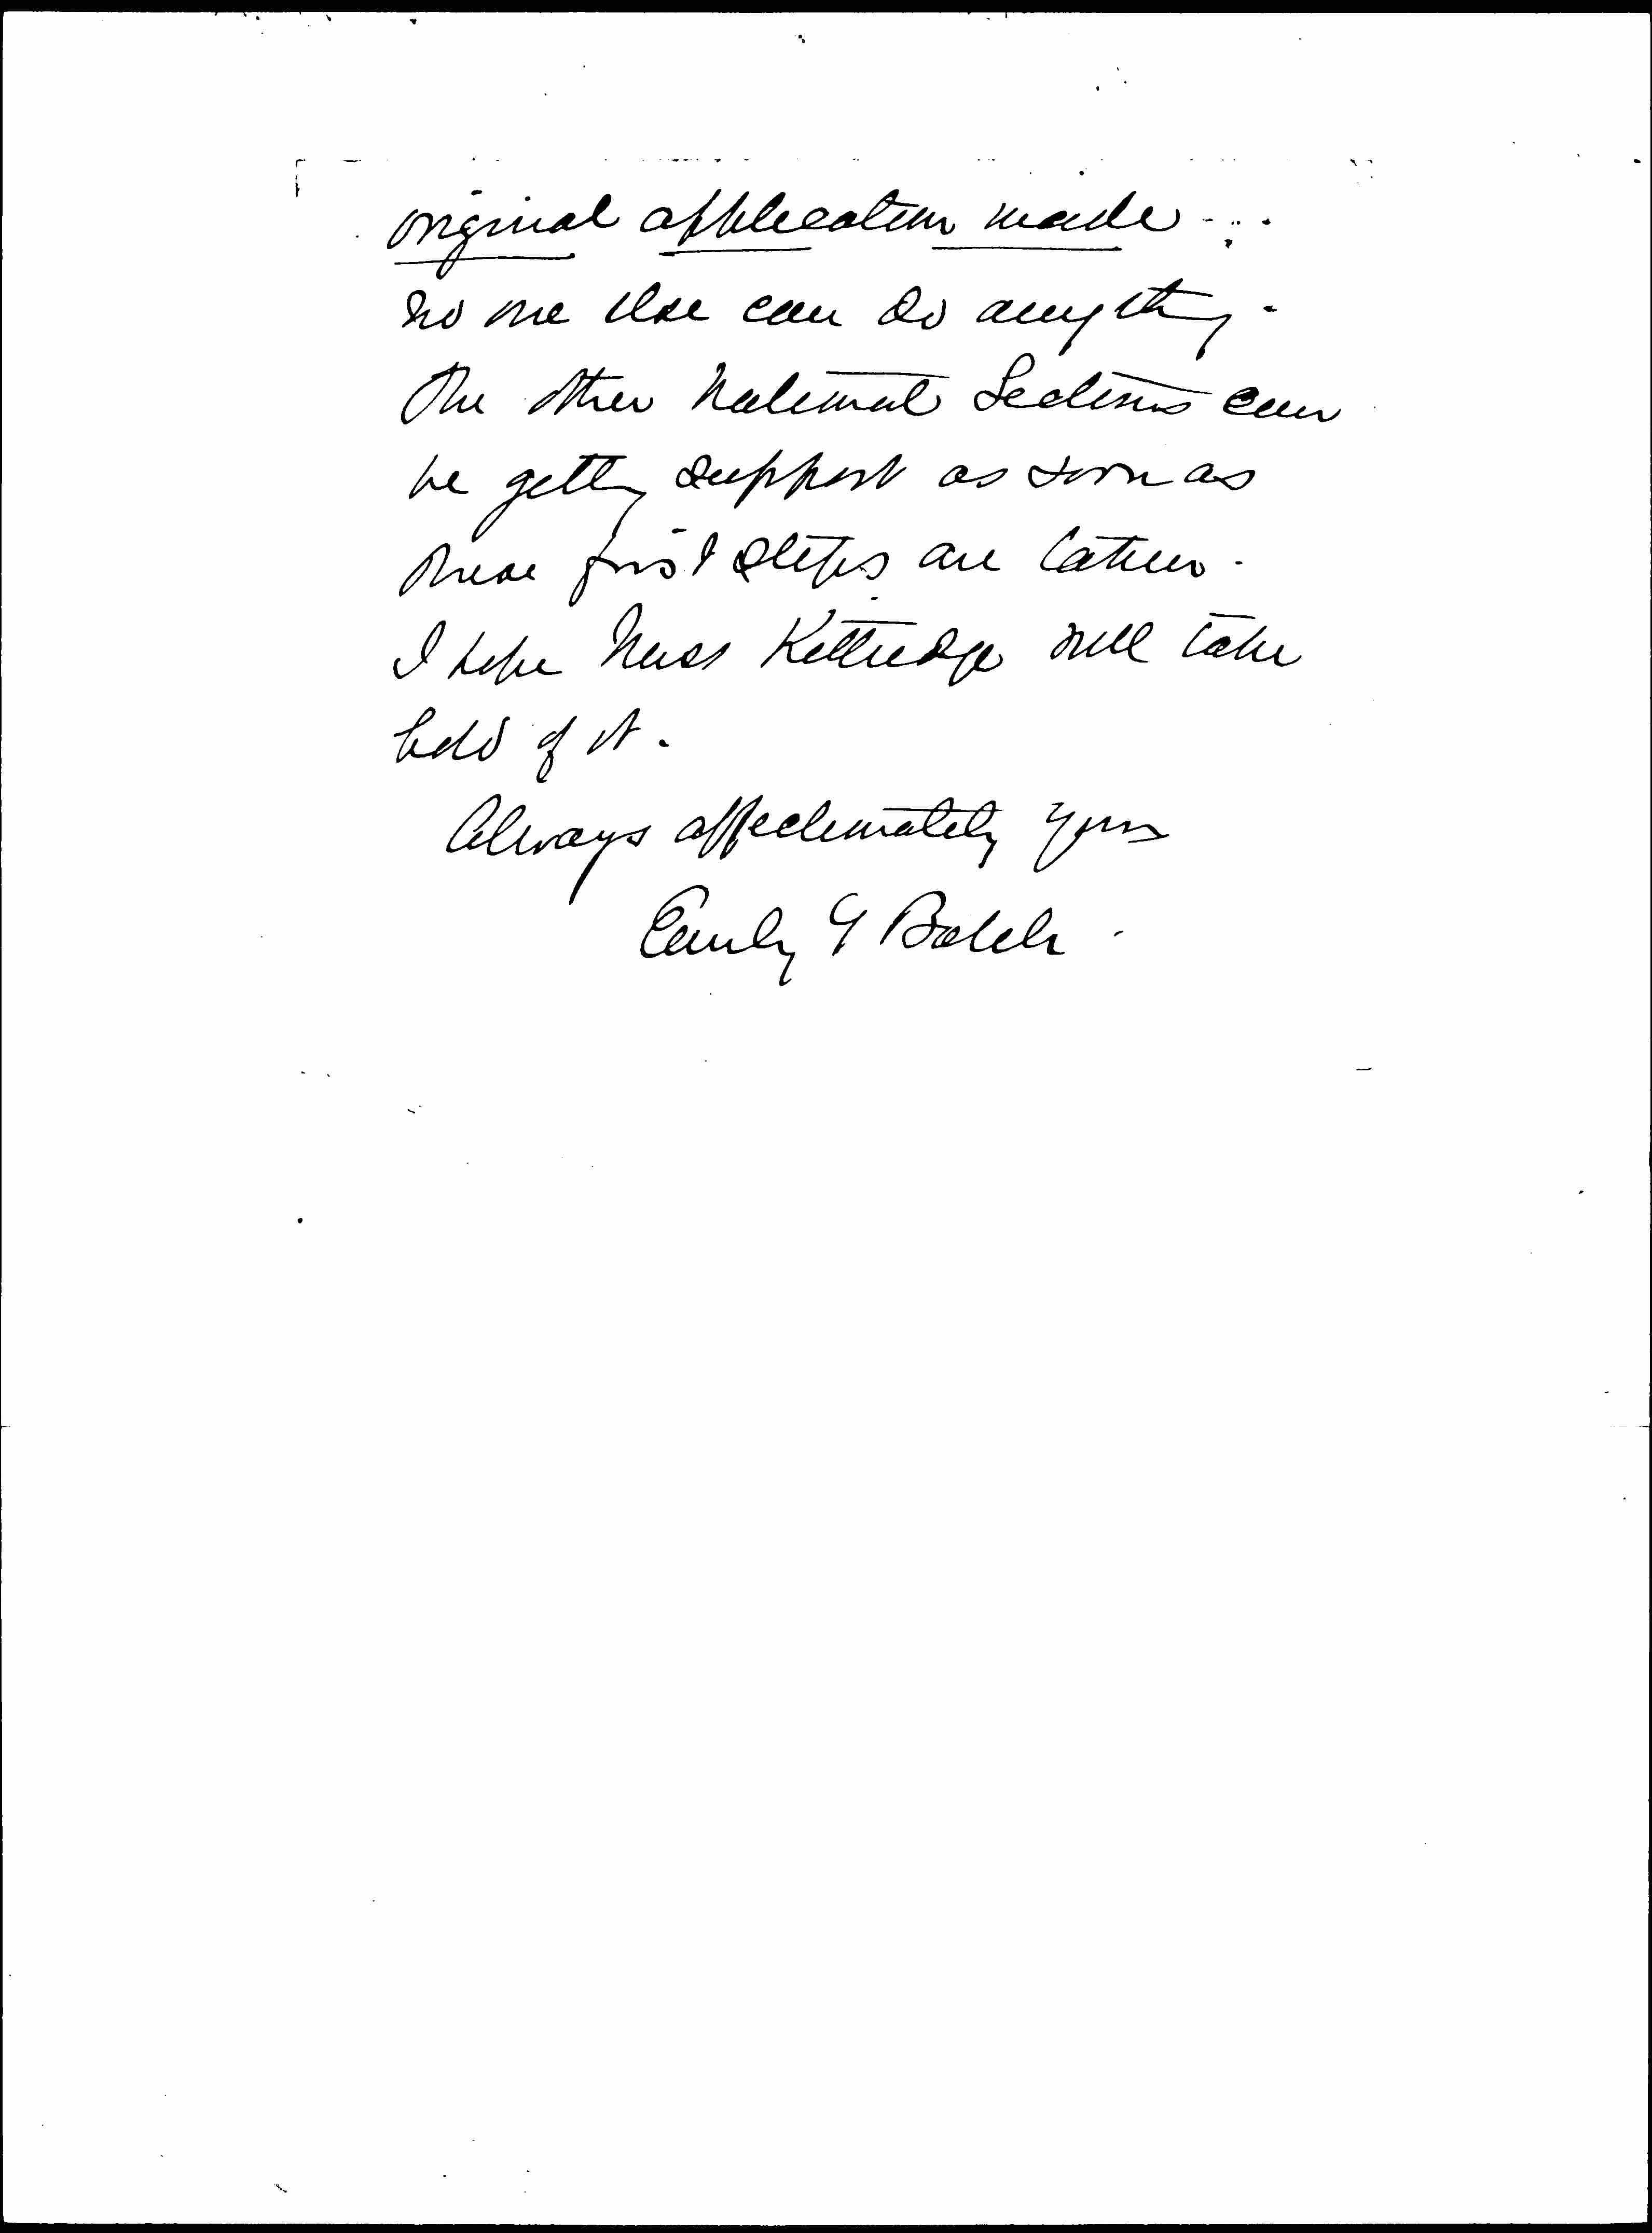 original application made -
no one else can do anything -
The other National Sections can
be getting support as soon as
these first steps are taken.
I hope Miss Kittredge will take
hold of it.
Always affectionately yours
Emily G Balch.